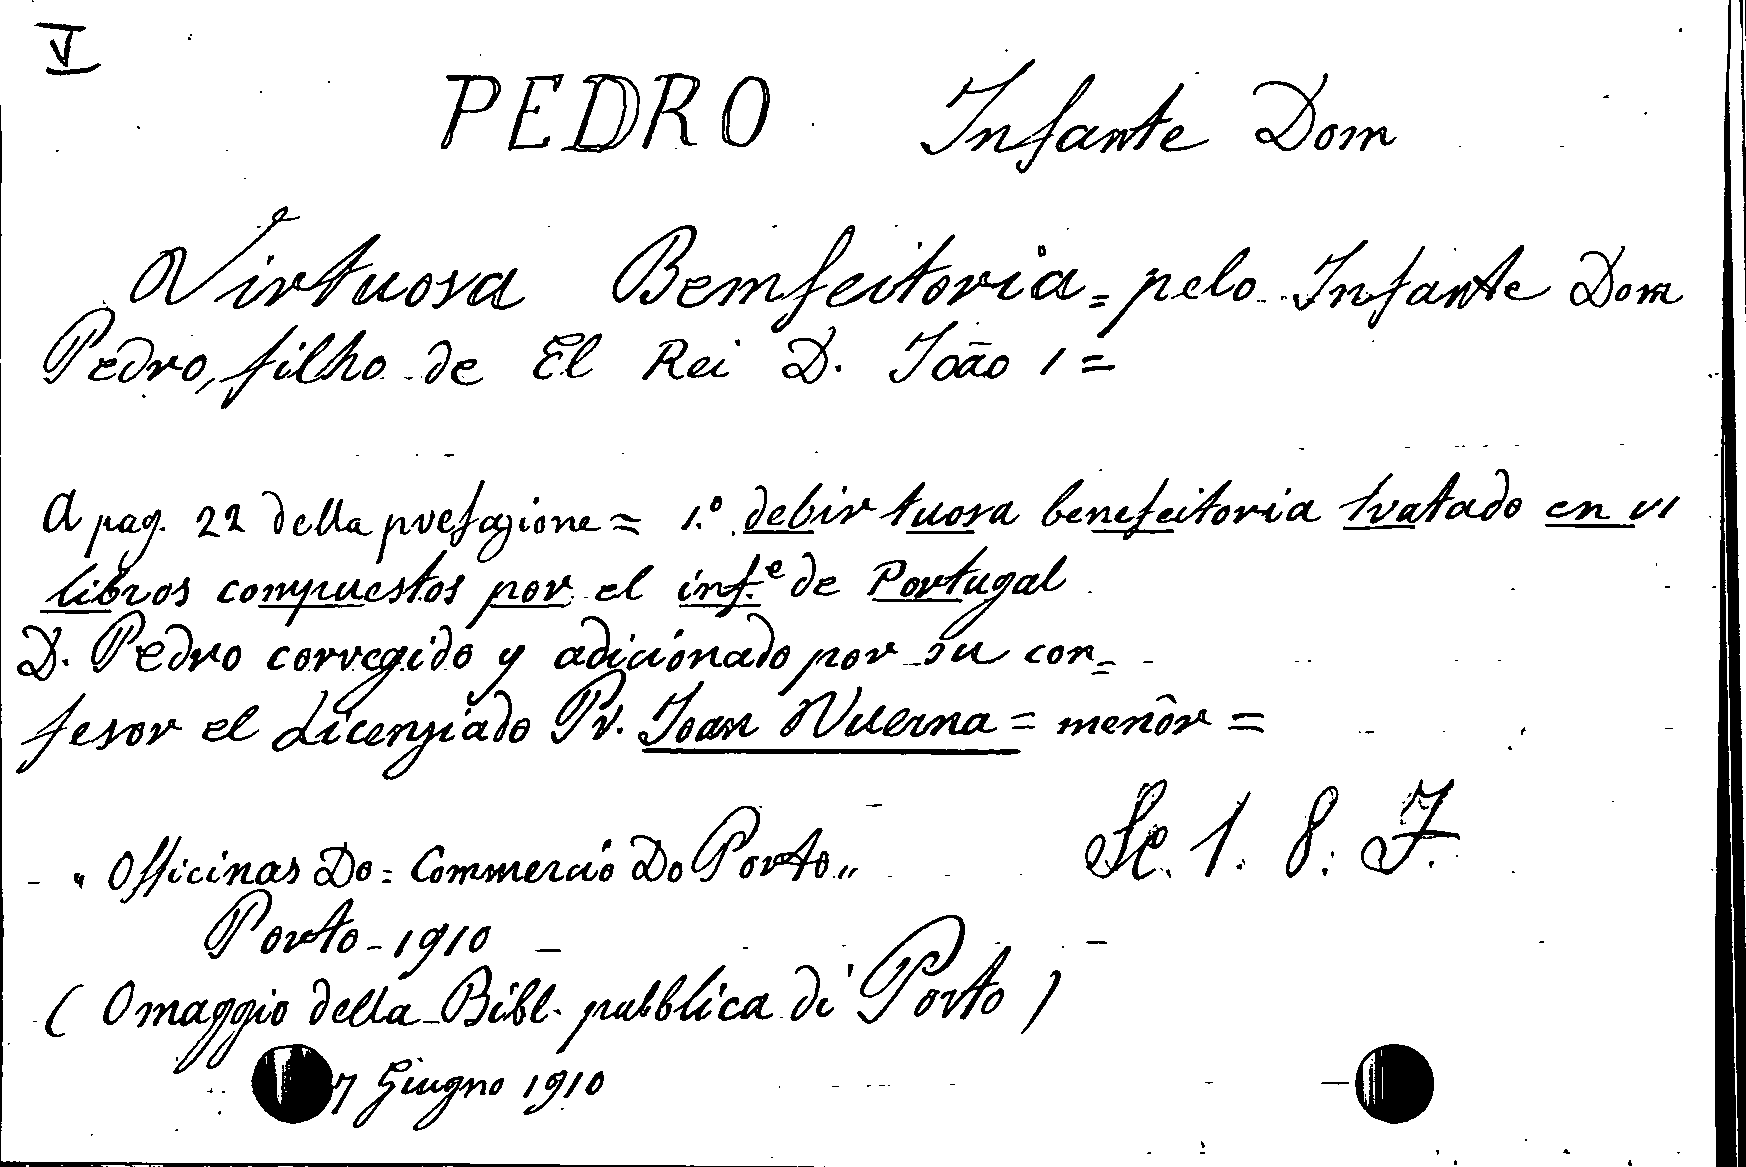 V
PEDRO Infante Dom
Virtuosa Bemfeitoria = pelo Infante Dom
Pedro, filho de El Rei D. João 1 =
A pag. 22 della prefazione = 1.º debirtuosa benefeitoria tratado en VI
libros compuestos por el inf.e de Portugal
D. Pedro corregido y adicionado por su con=
fesor el Licenziado Pr. Joan Vuerna = menôr =
"Officinas Do = Commercio Do Porto"
Sc. 1. 8. F.
Porto - 1910
(Omaggio della Bibl. pubblica di Porto)
7 Giugno 1910